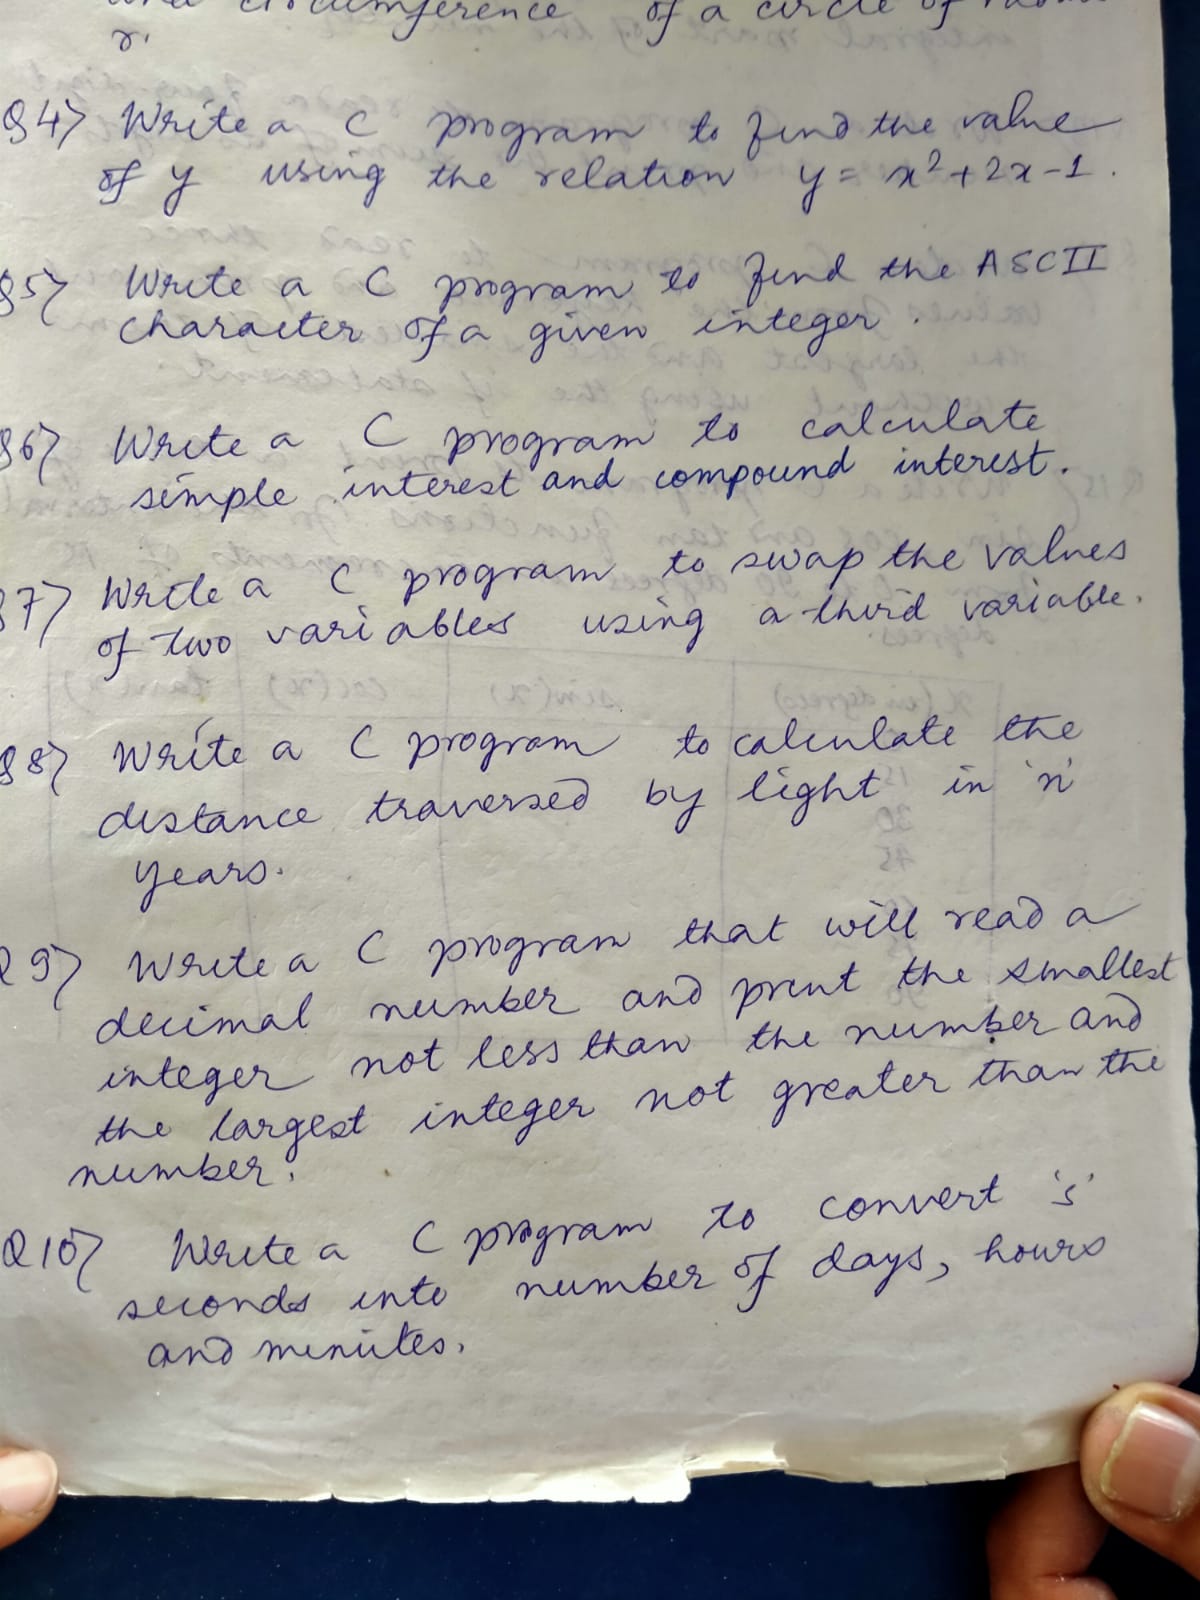 and circumference of a circle of
r.
Q4) Write a C program to find the value
of y using the relation y = x²+2x-1.
Q5) Write a C program to find the ASCII
character of a given integer.
Q6) Write a C program to calculate
simple interest and compound interest.
Q7) Write a C program to swap the values
of two variables using a third variable.
Q8) Write a C program to calculate the
distance traversed by light in 'n'
years.
Q9) Write a C program that will read a
decimal number and print the smallest
integer not less than the number and
the largest integer not greater than the
number.
Q10) Write a C program to convert 's'
seconds into number of days, hours
and minutes.